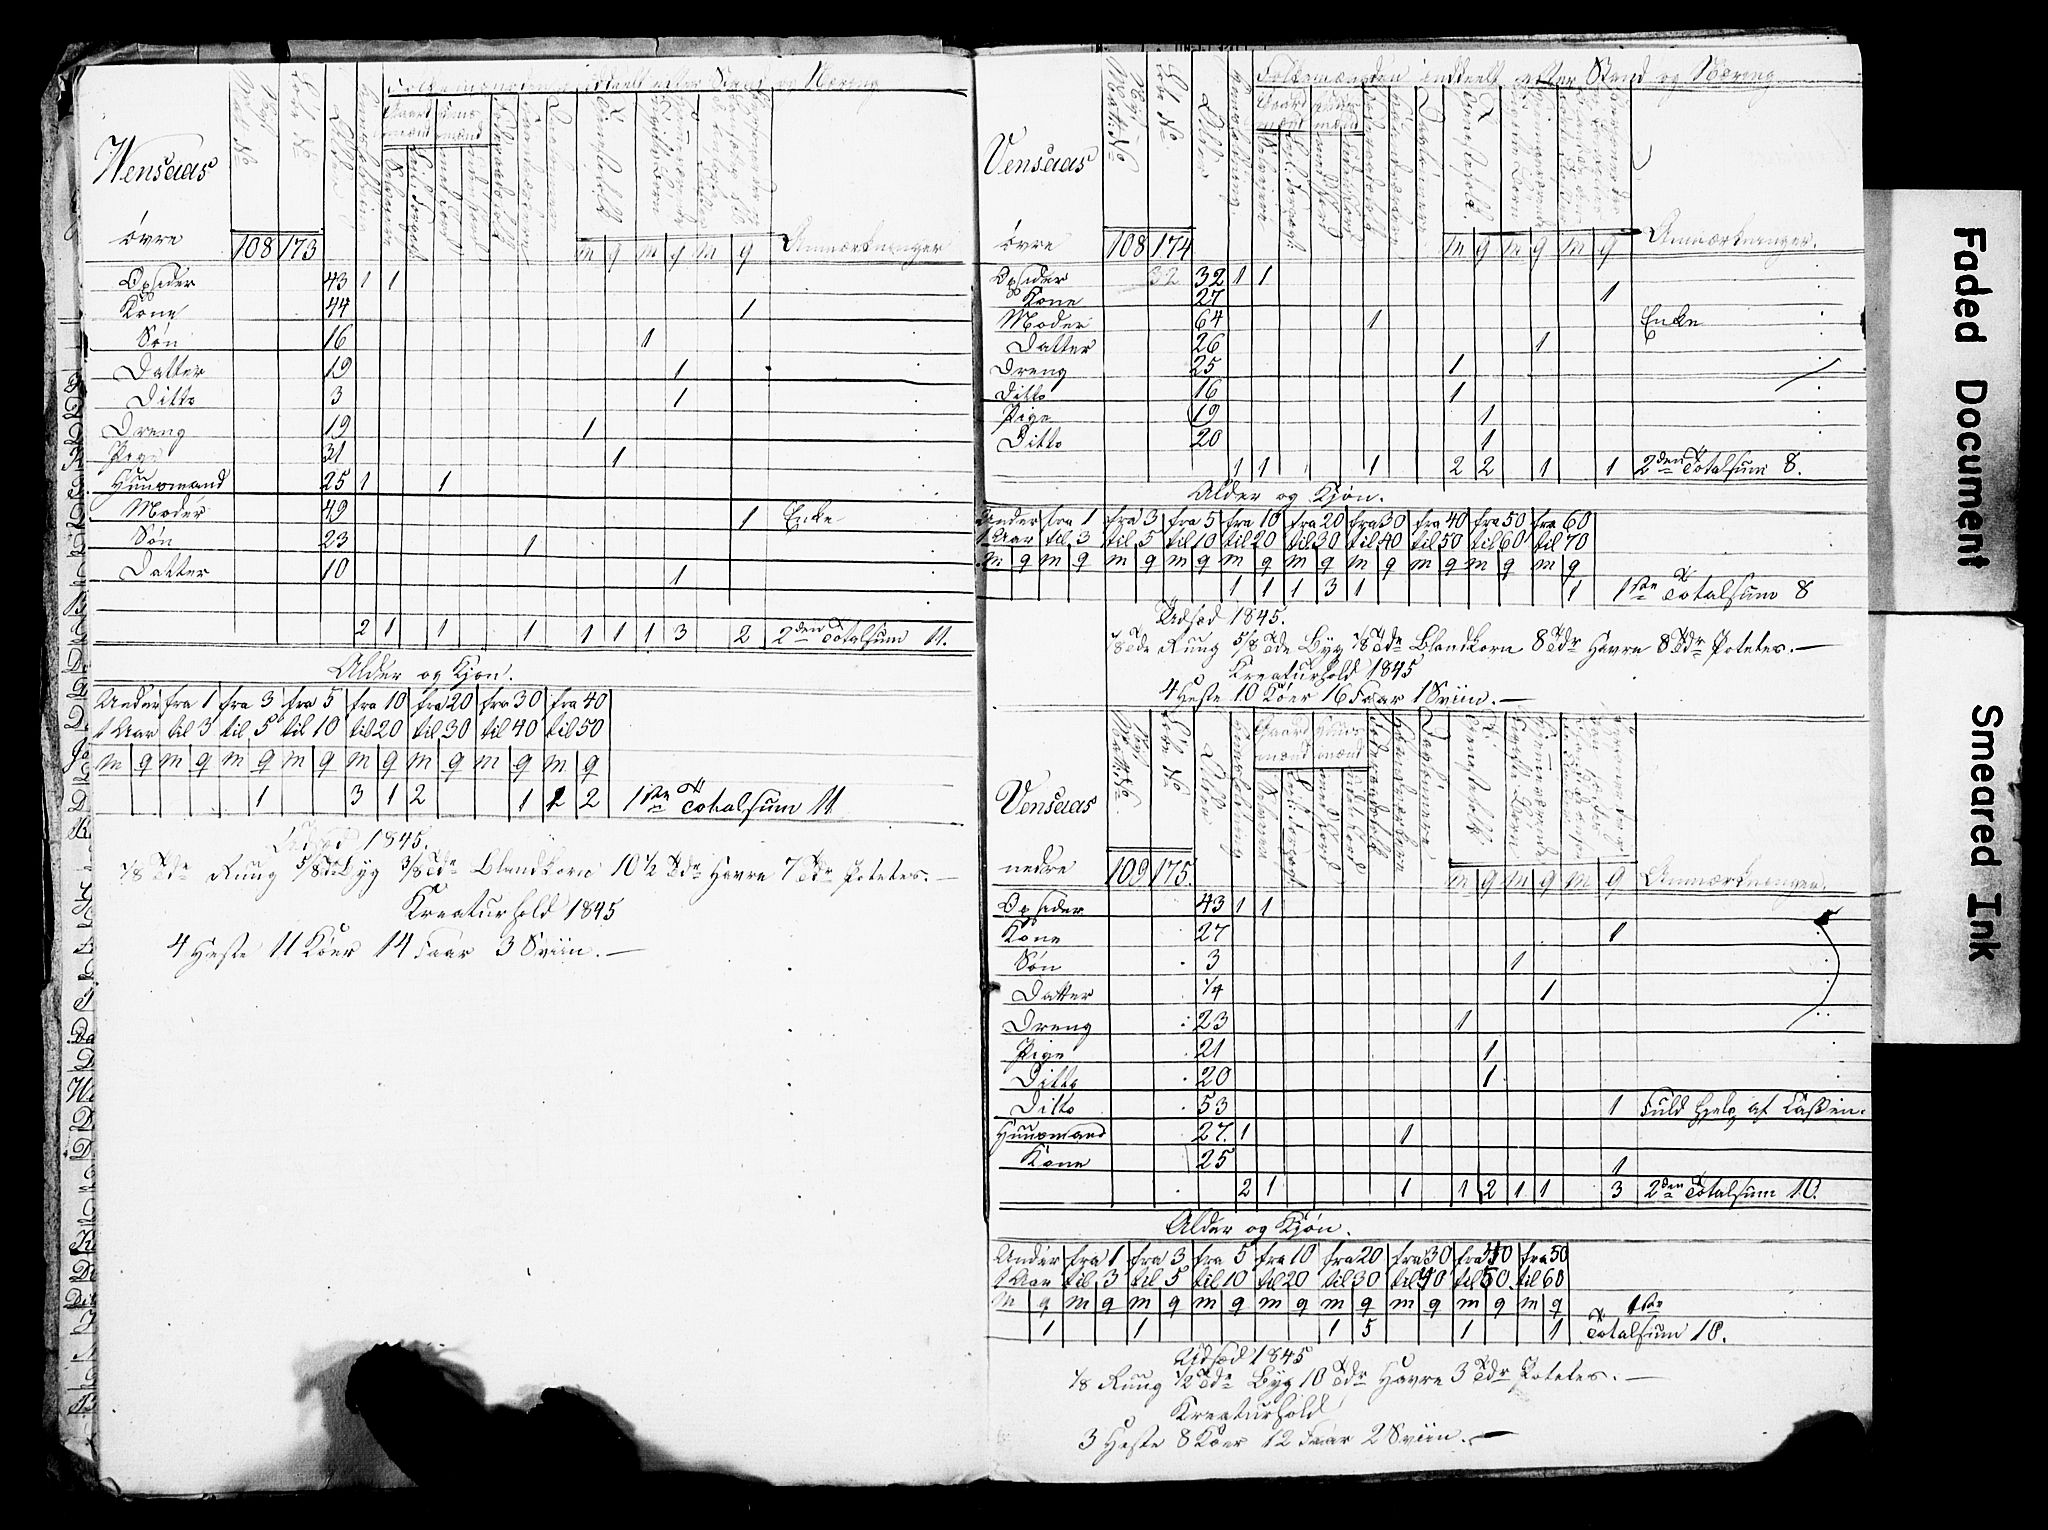 Wensaas
Matr. No
Løbe No
Alder
Huusholdning
Folkemængden inddeelt efter Stand og Næring
Gaardmænd
Huusmænd
Selveiere
med Jord
uden Jord
Tjenestefolk
øvre 108 173 m q m q m q Anmærkninger
Opsider 43 1 1
Kone 44 1
Søn 16 1
Datter 19 1
Ditto 3 1
Dreng 19 1
Pige 31 1
Huusmand 25 1 1
Moder 49 1 Enke
Søn 23 1
Datter 10 1
2 1 1 1 1 1 1 3 2 2den Totalsum 11.
Alder og Kjøn.
Under fra 1 fra 3 fra 5 fra 10 fra 20 fra 30 fra 40
1 Aar til 3 til 5 til 10 til 20 til 30 til 40 til 50
m q m q m q m q m q m q m q m q
1 3 1 2 1 1 2 1ste Totalsum 11
Udsæd 1845.
1/8 Tde Rung 5/8 Tde Byg 3/8 Tde Blandkorn 10 1/2 Tde Havre 7 Tdr Potetes. —
Kreaturhold 1845
4 Heste 11 Køer 14 Faar 3 Sviin. —
Vensaas
Matr. No
Løbe No
Alder
Huusholdning
Folkemængden inddeelt efter Stand og Næring
Gaardmænd
Huusmænd
Selveiere
med Jord
uden Jord
Haandværkere
Daglønnere
Tjenestefolk.
øvre 108 174 m q m q m q Anmærkninger.
Opsider 32 32 1 1
Kone 27 1
Moder 64 1 Enke
Datter 26 1
Dreng 25 1
Ditto 16 1
Pige 19 1
Ditto 20 1
1 1 1 2 2 1 1 2den Totalsum 8.
Alder og Kjøn.
Under fra 1 fra 3 fra 5 fra 10 fra 20 fra 30 fra 40 fra 50 fra 60
1 Aar til 3 til 5 til 10 til 20 til 30 til 40 til 50 til 60 til 70
m q m q m q m q m q m q m q m q m q m q
1 1 1 3 1 1 1ste Totalsum 8
Udsæd 1845.
1/8 Tde Rung 5/8 Tde Byg 7/8 Tde Blandkorn 8 Tdr Havre 8 Tdr Potetes. —
Kreaturhold 1845
4 Heste 10 Køer 16 Faar 1 Sviin. —
Vensaas
Matr. No
Løbe No
Alder
Huusholdning
Gaardmænd
Huusmænd
Selveiere
med Jord
uden Jord
Haandværkere
Daglønnere
Tjenestefolk
nedre 109 175. m q m q m q Anmærkninger.
Opsider 43 1 1
Kone 27 1
Søn 3 1
Datter 1/4 1
Dreng 23 1
Pige 21 1
Ditto 20 1
Ditto 53 1 Fuld Hjelp af Cassen.
Huusmand 27. 1 1
Kone 25 1
2 1 1 1 2 1 1 3 2den Totalsum 10.
Alder og Kjøn.
Under fra 1 fra 3 fra 5 fra 10 fra 20 fra 30 fra 40 fra 50
1 Aar til 3 til 5 til 10 til 20 til 30 til 40 til 50. til 60
m q m q m q m q m q m q m q m q m q 1ste
1 1 1 5 1 1 Totalsum 10.
Udsæd 1845
1/8 Rung 1/2 Tde Byg 10 Tdr Havre 3 Tdr Potetes. —
Kreaturhold
3 Heste 8 Køer 12 Faar 2 Sviin. —
Faded Document
Smeared Ink